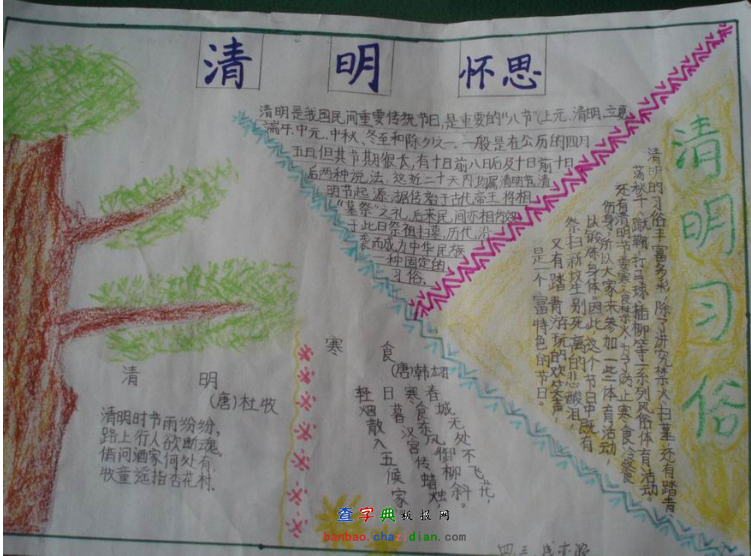 清明怀思
清明是我国民间重要传统节日,是重要的“八节”(上元、清明、立夏、
端午、中元、中秋、冬至和除夕)之一。一般是在公历的四月
五日,但其节期很长,有十日前八日后及十日前十日
后两种说法,这近二十天内均属清明节。清
明节起源,据传始于古代帝王将相
“墓祭”之礼,后来民间亦相仿效
于此日祭祖扫墓,历代沿
袭而成为中华民族
一种固定的
习俗。
清明习俗
清明的习俗丰富多彩,除了讲究禁火、扫墓,还有踏青、
荡秋千、蹴鞠、打马球、插柳等一系列风俗体育活动。
还有清明节要寒食禁火,为了防止寒食冷餐
伤身,所以大家来参加一些体育活动,
以锻炼身体。因此,这个节日中既有
祭扫新坟生别死离的悲酸泪,
又有踏青游玩的欢笑声,
是一个富特色的节日。
清明
(唐)杜牧
清明时节雨纷纷,
路上行人欲断魂。
借问酒家何处有,
牧童遥指杏花村。
寒食
(唐)韩翃
春城无处不飞花,
寒食东风御柳斜。
日暮汉宫传蜡烛,
轻烟散入五侯家
四三
查字典板报网
banbao.chazidian.com